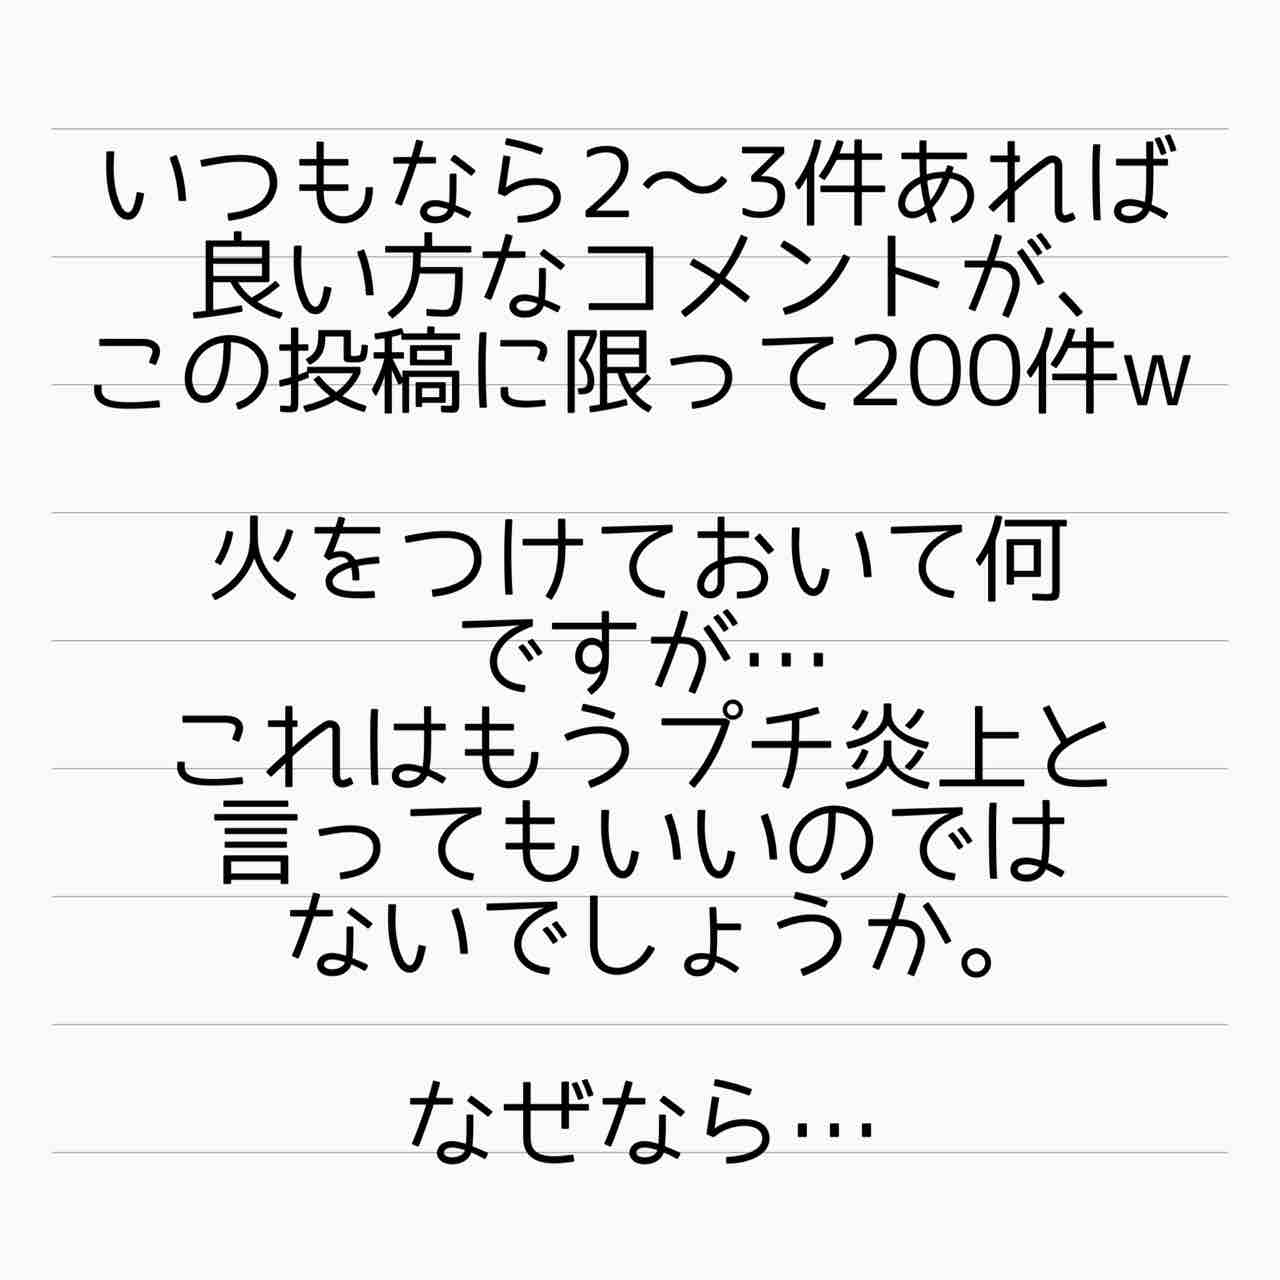 いつもなら2〜3件あれば
良い方なコメントが、
この投稿に限って200件w
火をつけておいて何
ですが…
これはもうプチ炎上と
言ってもいいのでは
ないでしょうか。
なぜなら…